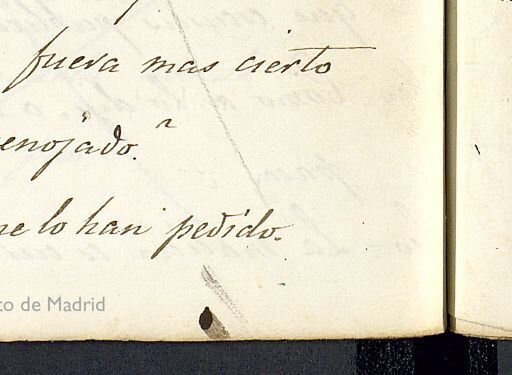 fuera mas cierto
enojado."
me lo han pedido.
to de Madrid